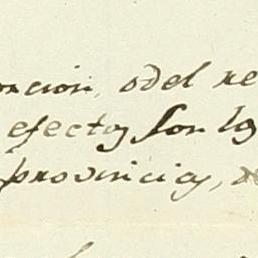 oncion, odel re
efectos son los
provincias, de